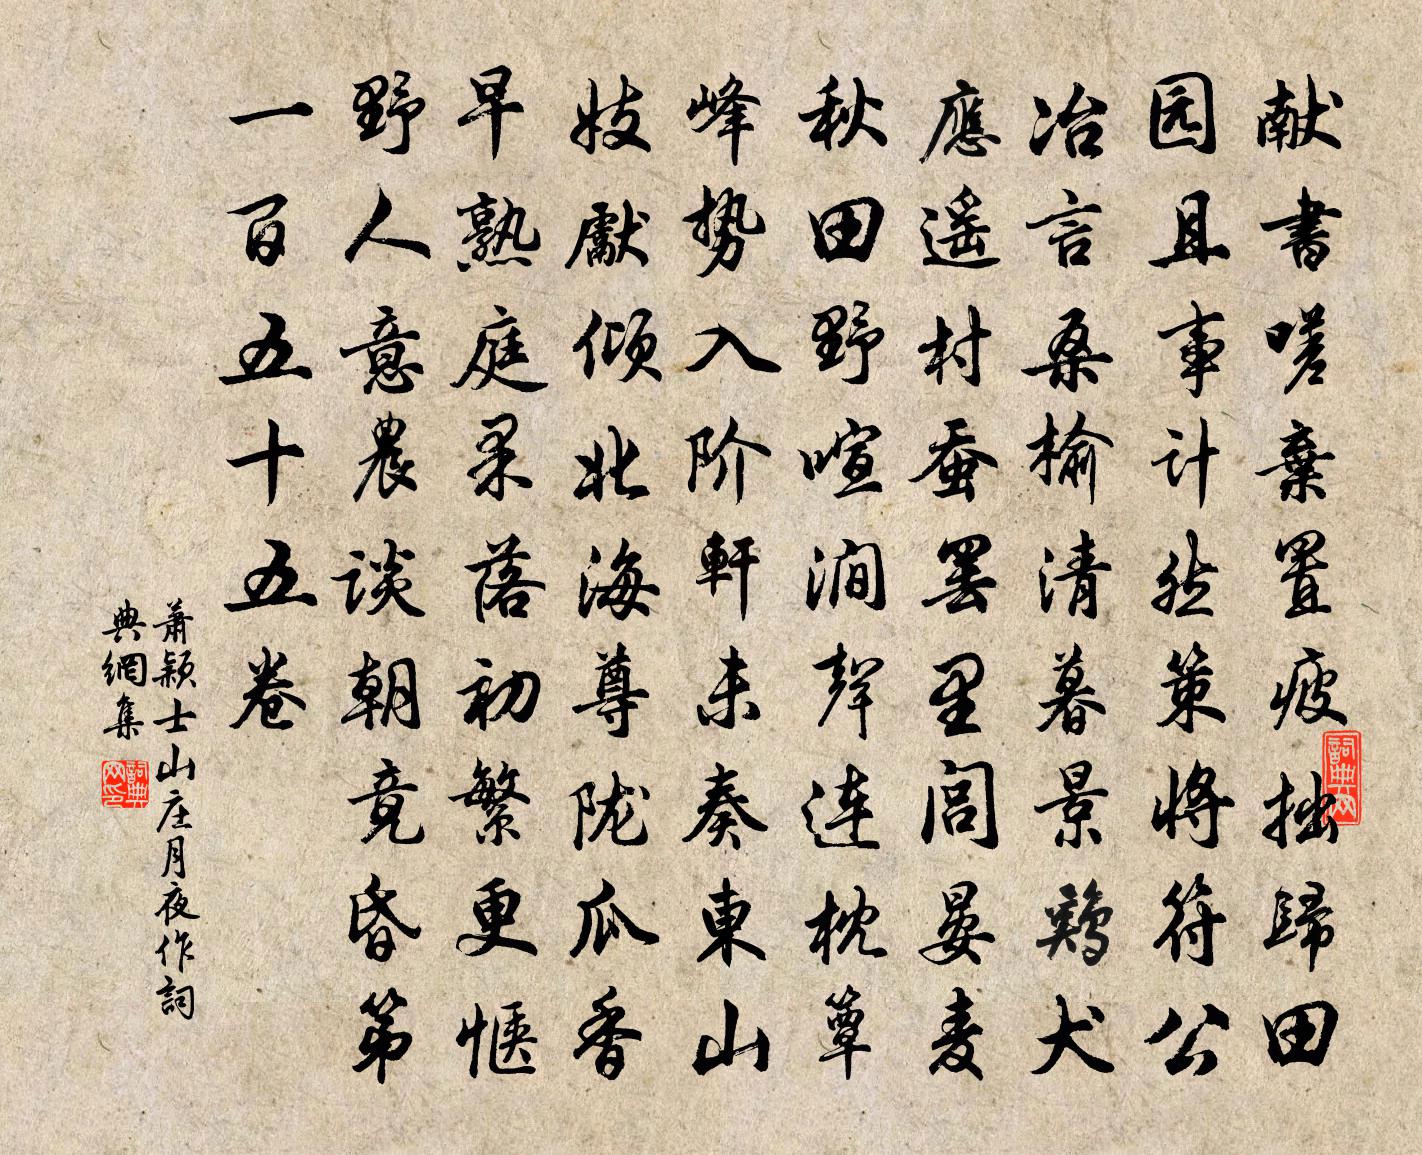 献書嗟棄置疲拙歸田
园且事计然策将符公
冶言桑榆清暮景鷄犬
應遥村蚕罢里闾晏麦
秋田野喧澗聲連枕簟
峰势入阶軒未奏東山
妓獻傾北海尊陇瓜香
早熟庭果落初繁更愜
野人意農談朝竟昏第
一百五十五卷
萧颖士山庄月夜作詞
典網集
詞典网
詞典网印